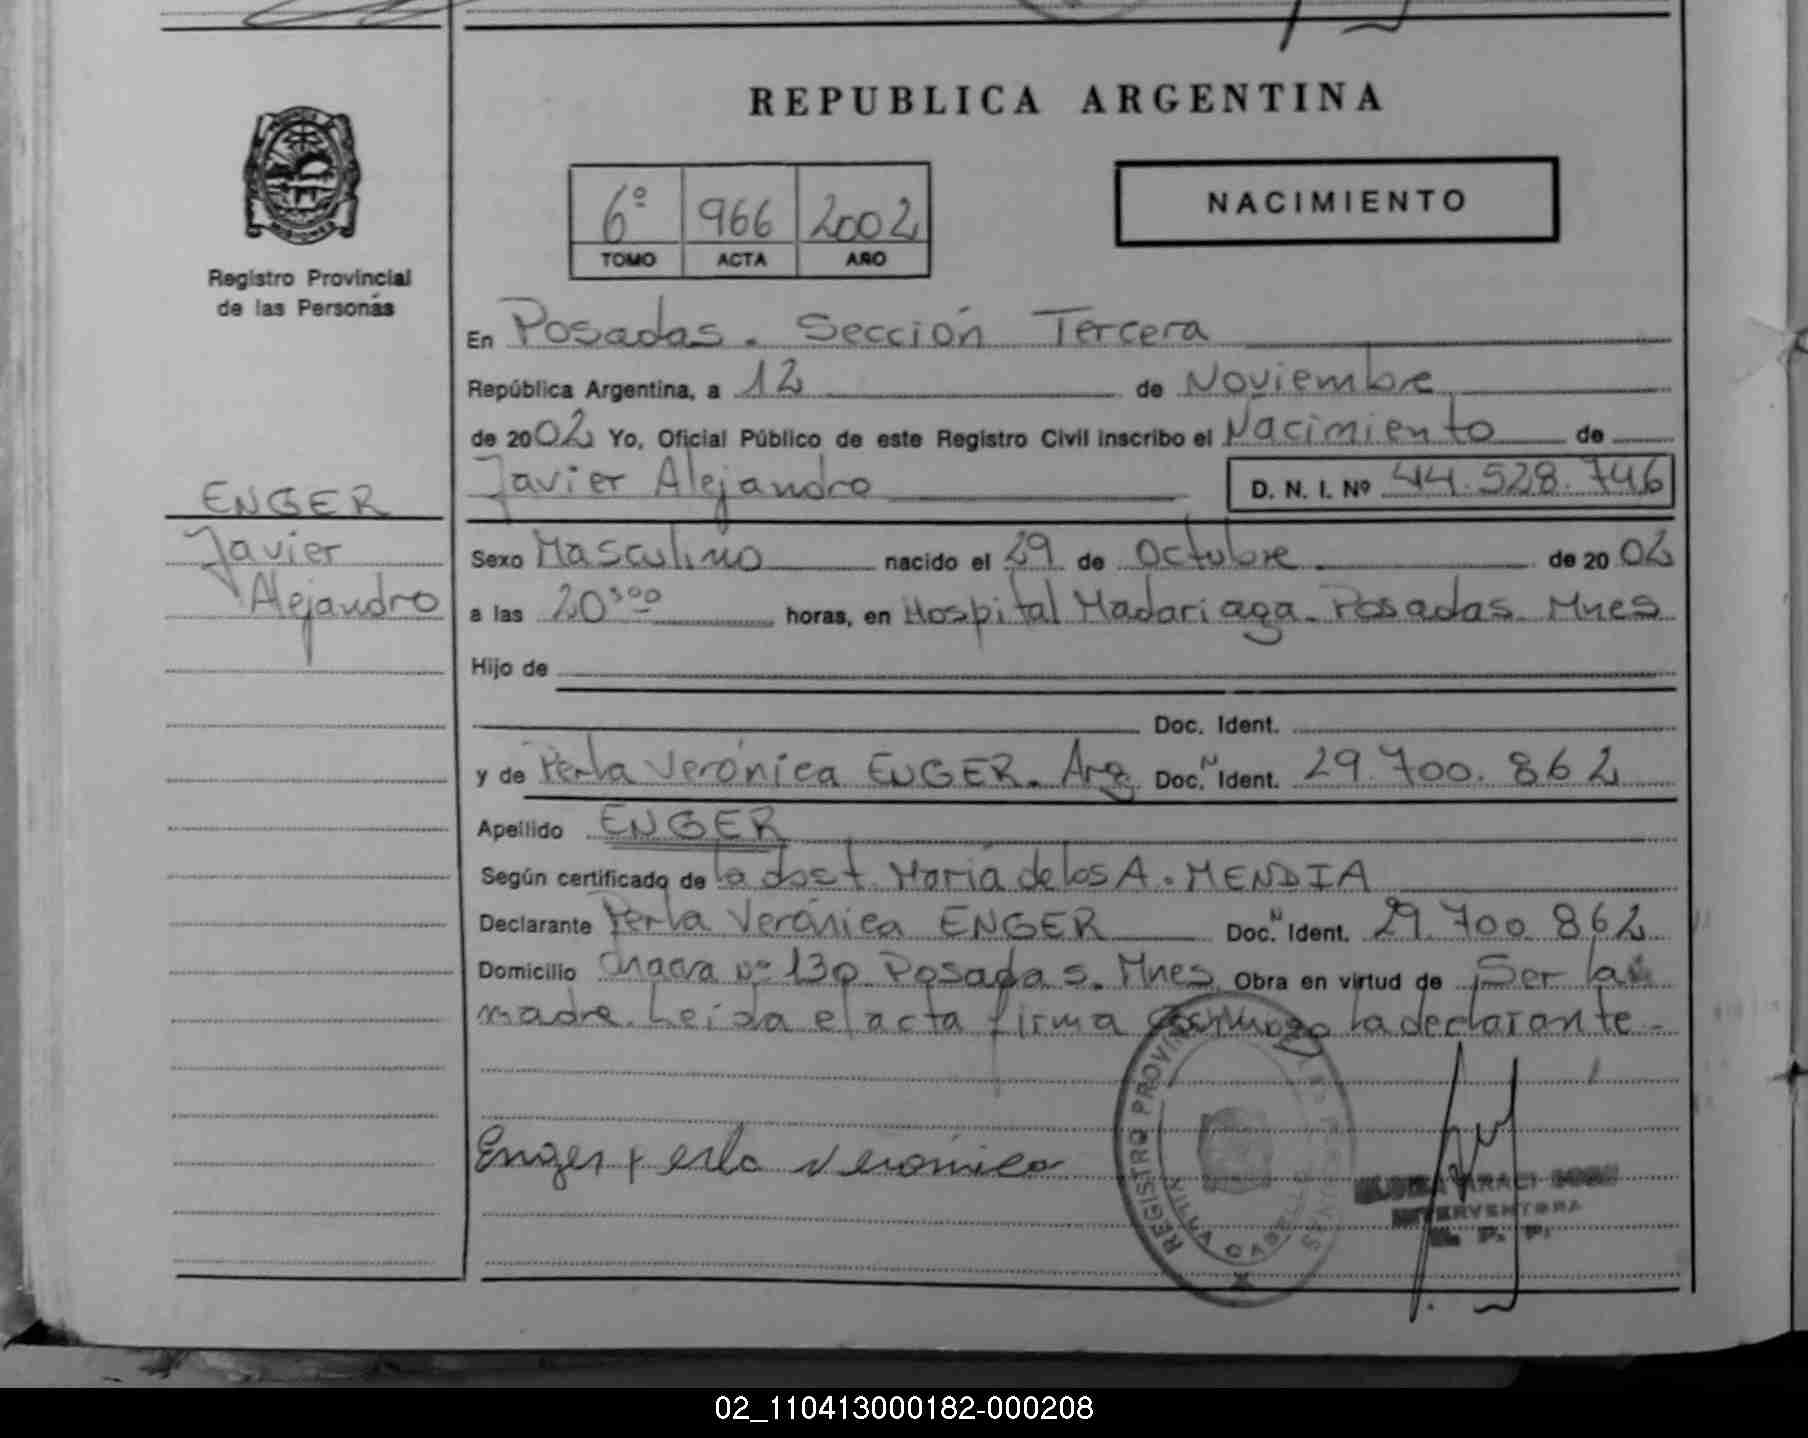 REPUBLICA ARGENTINA
6º 966 2002
TOMO ACTA AÑO
NACIMIENTO
Registro Provincial
de las Personas
En Posadas. Sección Tercera
República Argentina, a 12 de Noviembre
de 2002 Yo, Oficial Público de este Registro Civil inscribo el Nacimiento de
Javier Alejandro D. N. I. Nº 44.528.746
ENGER
Javier
Alejandro
Sexo Masculino nacido el 29 de Octubre de 2002
a las 20:00 horas, en Hospital Madariaga. Posadas. Mnes
Hijo de
Doc. Ident.
y de Perla Verónica ENGER. Arg. Doc. N Ident. 29.700.862
Apellido ENGER
Según certificado de la doct. María de los A. MENDIA
Declarante Perla Verónica ENGER Doc. N Ident. 29.700.862
Domicilio Chacra nº 130 Posadas. Mnes. Obra en virtud de Ser la
madre. Leída el acta firma conmigo la declarante.
Enger Perla Verónica
REGISTRO PROVINCIAL DE LAS PERSONAS
INTERVENTORA
R. P. P.
02_110413000182-000208